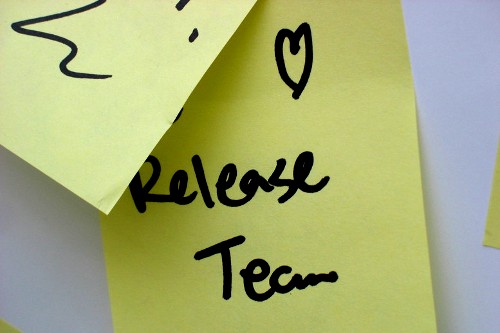 ♥
Release
Team